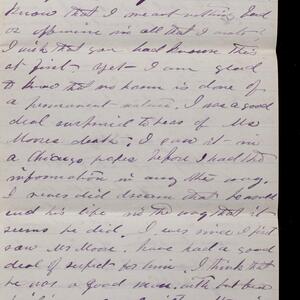 know that I meant nothing bad
or offensive in all that I wrote
I wish that you had known this
at first yet I am glad
to know that no harm is done of
a permanent nature. I was a good
deal surprised to hear of Mr
Moores death. I saw it in
a Chicago paper before I had the
information in any other way.
I never did dream that he would
end his life in the way that it
seems he did. I ever since I first
saw Mr. Moore have had a good
deal of respect for him. I think that
he was a good man. with but